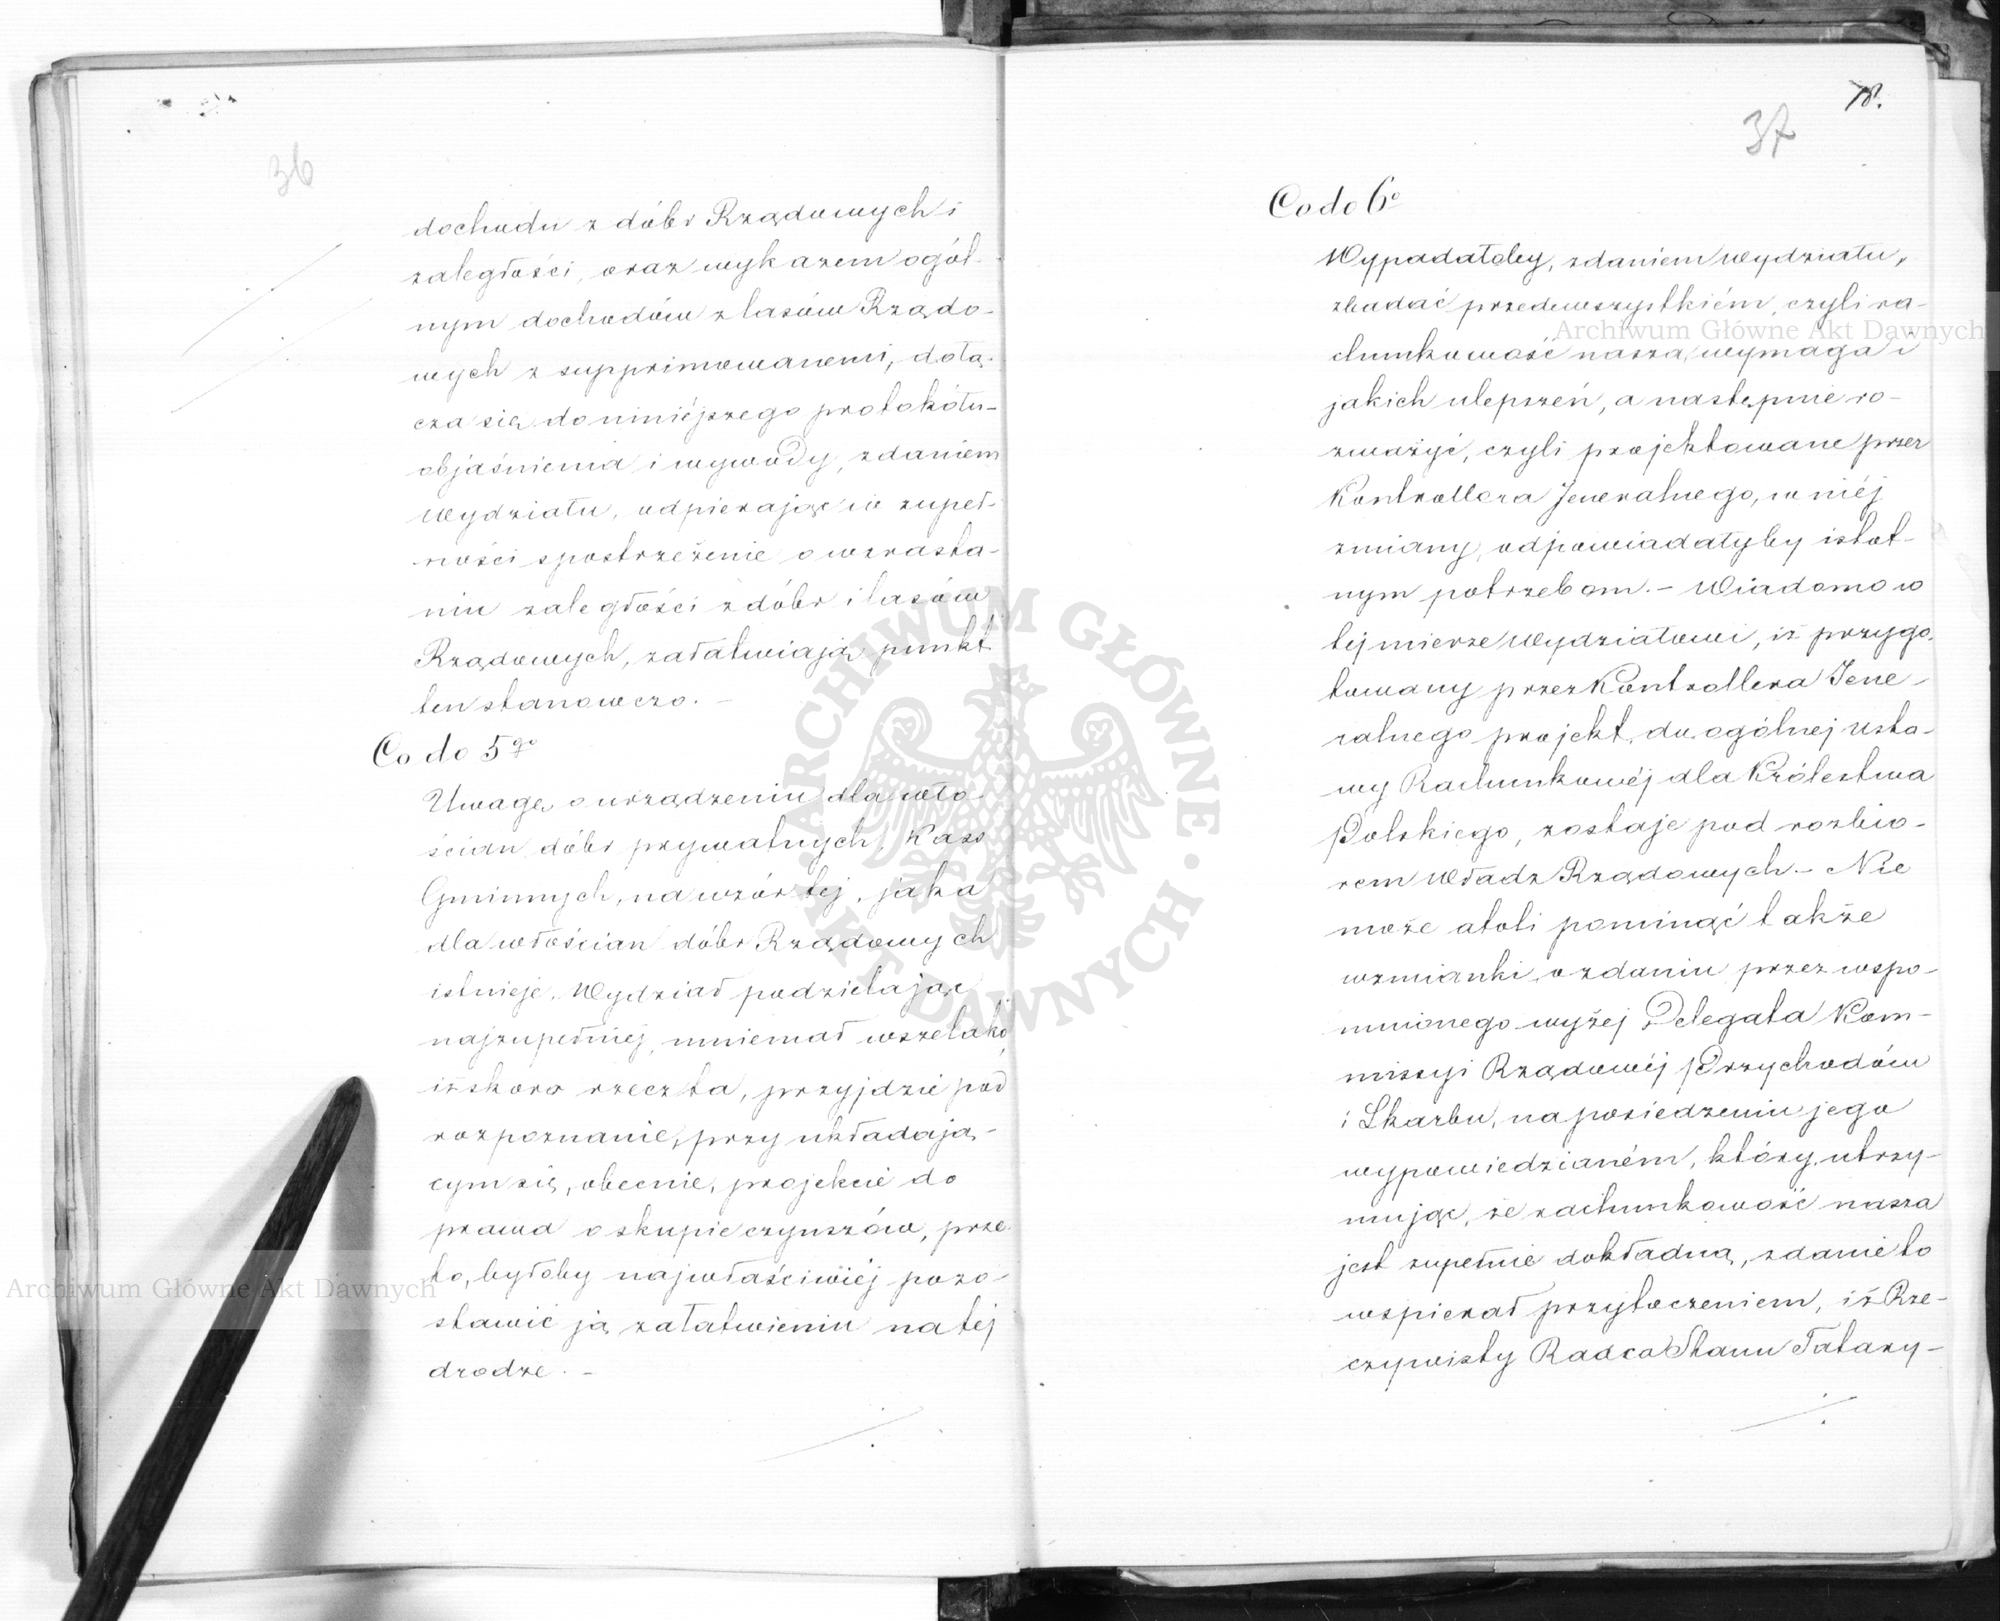 36
dochodu z dóbr Rządowych i
zaległości, oraz wykazem ogól-
nym dochodów z lasów Rządo-
wych z supprimowanemi, dołą-
cza się do niniéjszego protokółu-
objaśnienia i wywody, zdaniem
Wydziału, odpierając w zupeł-
ności spostrzeżenie o wzrasta-
niu zaległości z dóbr i lasów
Rządowych, załatwiają punkt
ten stanowczo. -
Co do 5go
Uwagę o urządzeniu dla wło-
ścian dóbr prywatnych, Kass
Gminnych, na wzór tej, jaka
dla włościan dóbr Rządowych
istnieje, Wydział podzielając
najzupełniej, mniemał wszelako,
iż skoro rzecz ta, przyjdzie pod
rozpoznanie, przy układają-
cym się, obecnie, projekcie do
prawa o skupie czynszów, prze-
to, byłoby najwłaściwiéj pozo-
stawić ją załatwieniu na tej
drodze. -
18.
37
Co do 6o
Wypadałoby, zdaniem Wydziału,
zbadać przedewszystkiém, czyli ra-
chunkowość nasza, wymaga i
jakich ulepszeń, a następnie ro-
zważyć, czyli projektowane przez
Kontrollera Jeneralnego, w niéj
zmiany, odpowiadałyby istot-
nym potrzebom. - Wiadomo w
tej mierze Wydziałowi, iż przygo-
towany przez Kontrollera Jene-
ralnego projekt, do ogólnej Usta-
wy Rachunkowéj dla Królestwa
Polskiego, zostaje pod rozbio-
rem Władz Rządowych. - Nie
może atoli pominąć także
wzmianki o zdaniu przez wspo-
mnionego wyżej Delegata Kom-
missyi Rządowéj Przychodów
i Skarbu, na posiedzeniu jego
wypowiedzianém, który, utrzy-
mując, że rachunkowość nasza
jest zupełnie dokładną, zdanie to
wspierał przytoczeniem, iż Rze-
czywisty Radca Stanu Tatary-
Archiwum Główne Akt Dawnych
Archiwum Główne Akt Dawnych
ARCHIWUM GŁÓWNE AKT DAWNYCH